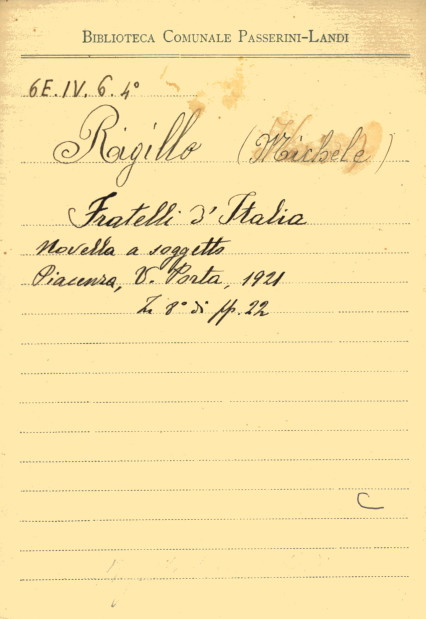 BIBLIOTECA COMUNALE PASSERINI-LANDI
6E. IV. 6. 4°
Rigillo (Michele)
Fratelli d'Italia
Novella a soggetto
Piacenza, V. Porta, 1921
In 8° di pp. 22
C